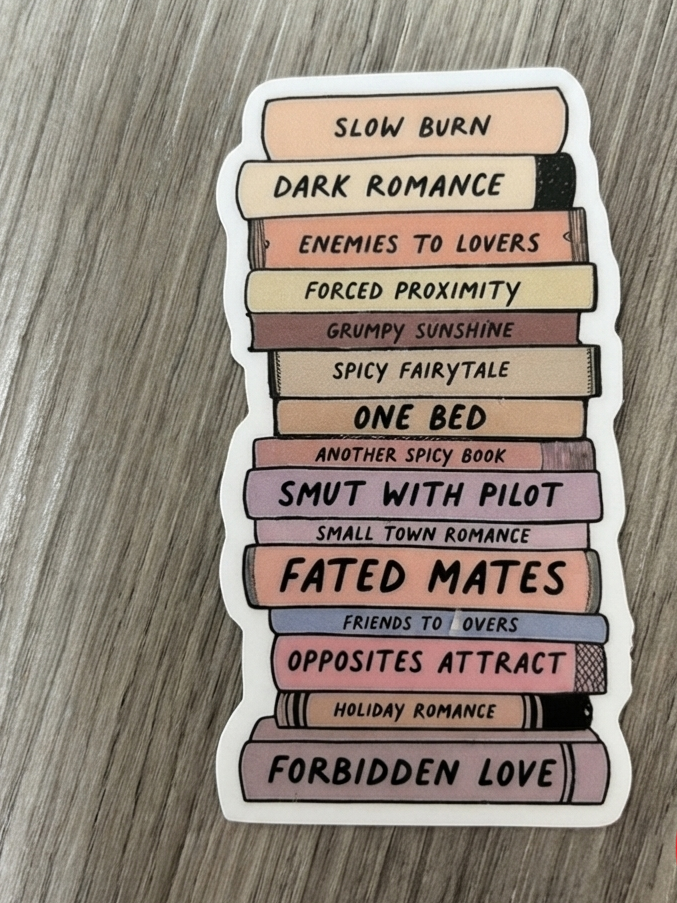 SLOW BURN
DARK ROMANCE
ENEMIES TO LOVERS
FORCED PROXIMITY
GRUMPY SUNSHINE
SPICY FAIRYTALE
ONE BED
ANOTHER SPICY BOOK
SMUT WITH PILOT
SMALL TOWN ROMANCE
FATED MATES
FRIENDS TO OVERS
OPPOSITES ATTRACT
HOLIDAY ROMANCE
FORBIDDEN LOVE